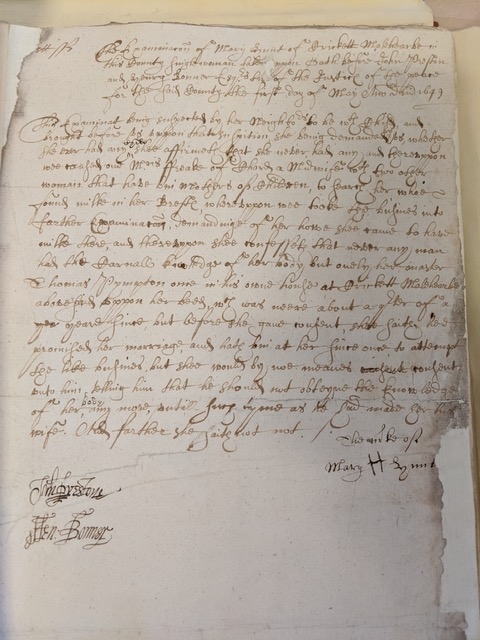 The Examinacon of Mary Hunt of Crickett Malchearbe in
this County singlewoman taken uppon Oath before John Preston
and Henry Bonner Esqrs two of the Justices of the peace
for the said County the first day of May Anno Dni 1649
This Examinat being suspected by her Neighbors to be wth Child and
brought before us uppon that suspition she being demanded by us whether
she ever had any she affirmeth that she never had any and thereuppon
wee caused one Mary of Chard a Midwife wth two other
woman that have bin mothers of Children, to search her whoe
found milke in her Brests whereuppon wee tooke the busines into
farther Examinacon, demandinge of her howe she came to have
milke there, and thereuppon shee confesseth that never any man
had the Carnall knowledge of her body but onely her master
Thomas Pympton once in his owne house at Crickett Malchearbe
aforesaid uppon her bedd wch was neere about a qter of a
yeare since, but before she gave consent, shee saith hee
promised her marriage, and hath bin at her since once to attempt
the like busines, but shee would by noe meanes consent
unto him, tellinge him that he should not obteyne the knowledge
of her body any more, untill such tyme as he had made her his
wife. And farther she saith not. /
The mrke of
Mary H Hunt
John Preston
Hen: Bonner